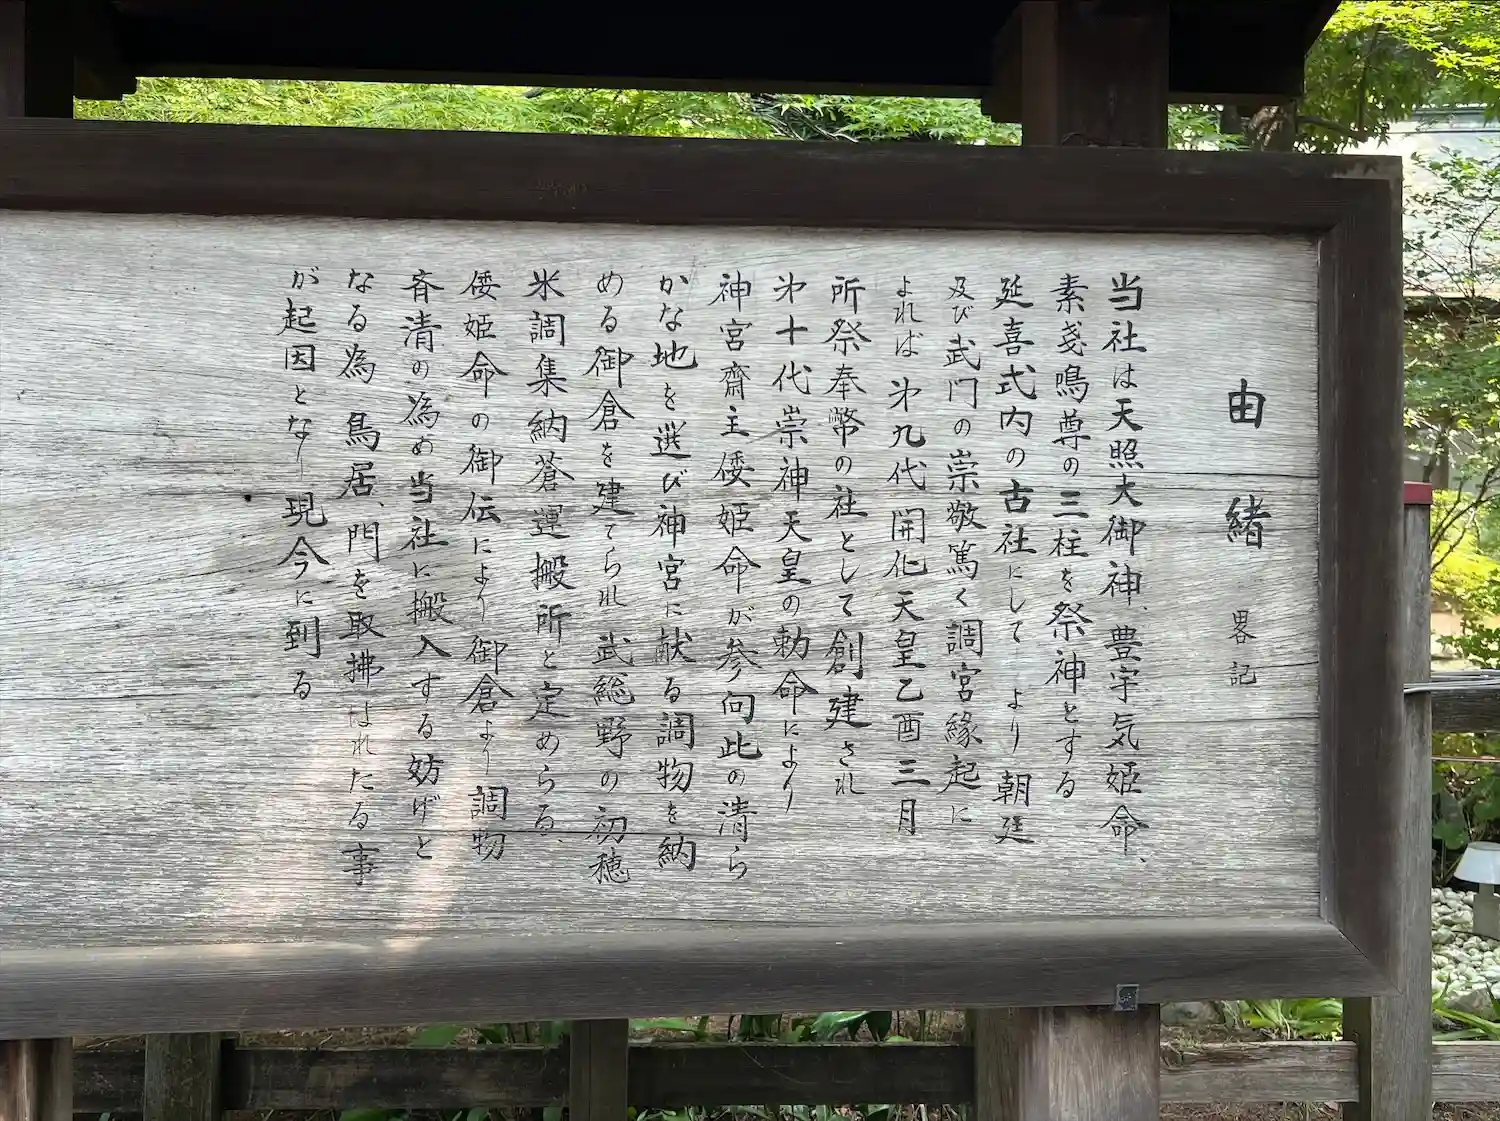 由緒 畧記
当社は天照大御神、豊宇気姫命、
素戔鳴尊の三柱を祭神とする
延喜式内の古社にして より 朝廷
及び武門の崇敬篤く調宮縁起に
よれば 㐧九代開化天皇乙酉三月
所祭奉幣の社として創建され
㐧十代崇神天皇の勅命により
神宮齋主倭姫命が参向此の清ら
かな地を選び神宮に献る調物を納
める御倉を建てられ 武総野の初穂
米調集納蒼運搬所と定めらる、
倭姫命の御伝により 御倉より調物
斉清の為め当社に搬入する妨げと
なる為 鳥居、門を取拂はれたる事
が起因となり現今に到る